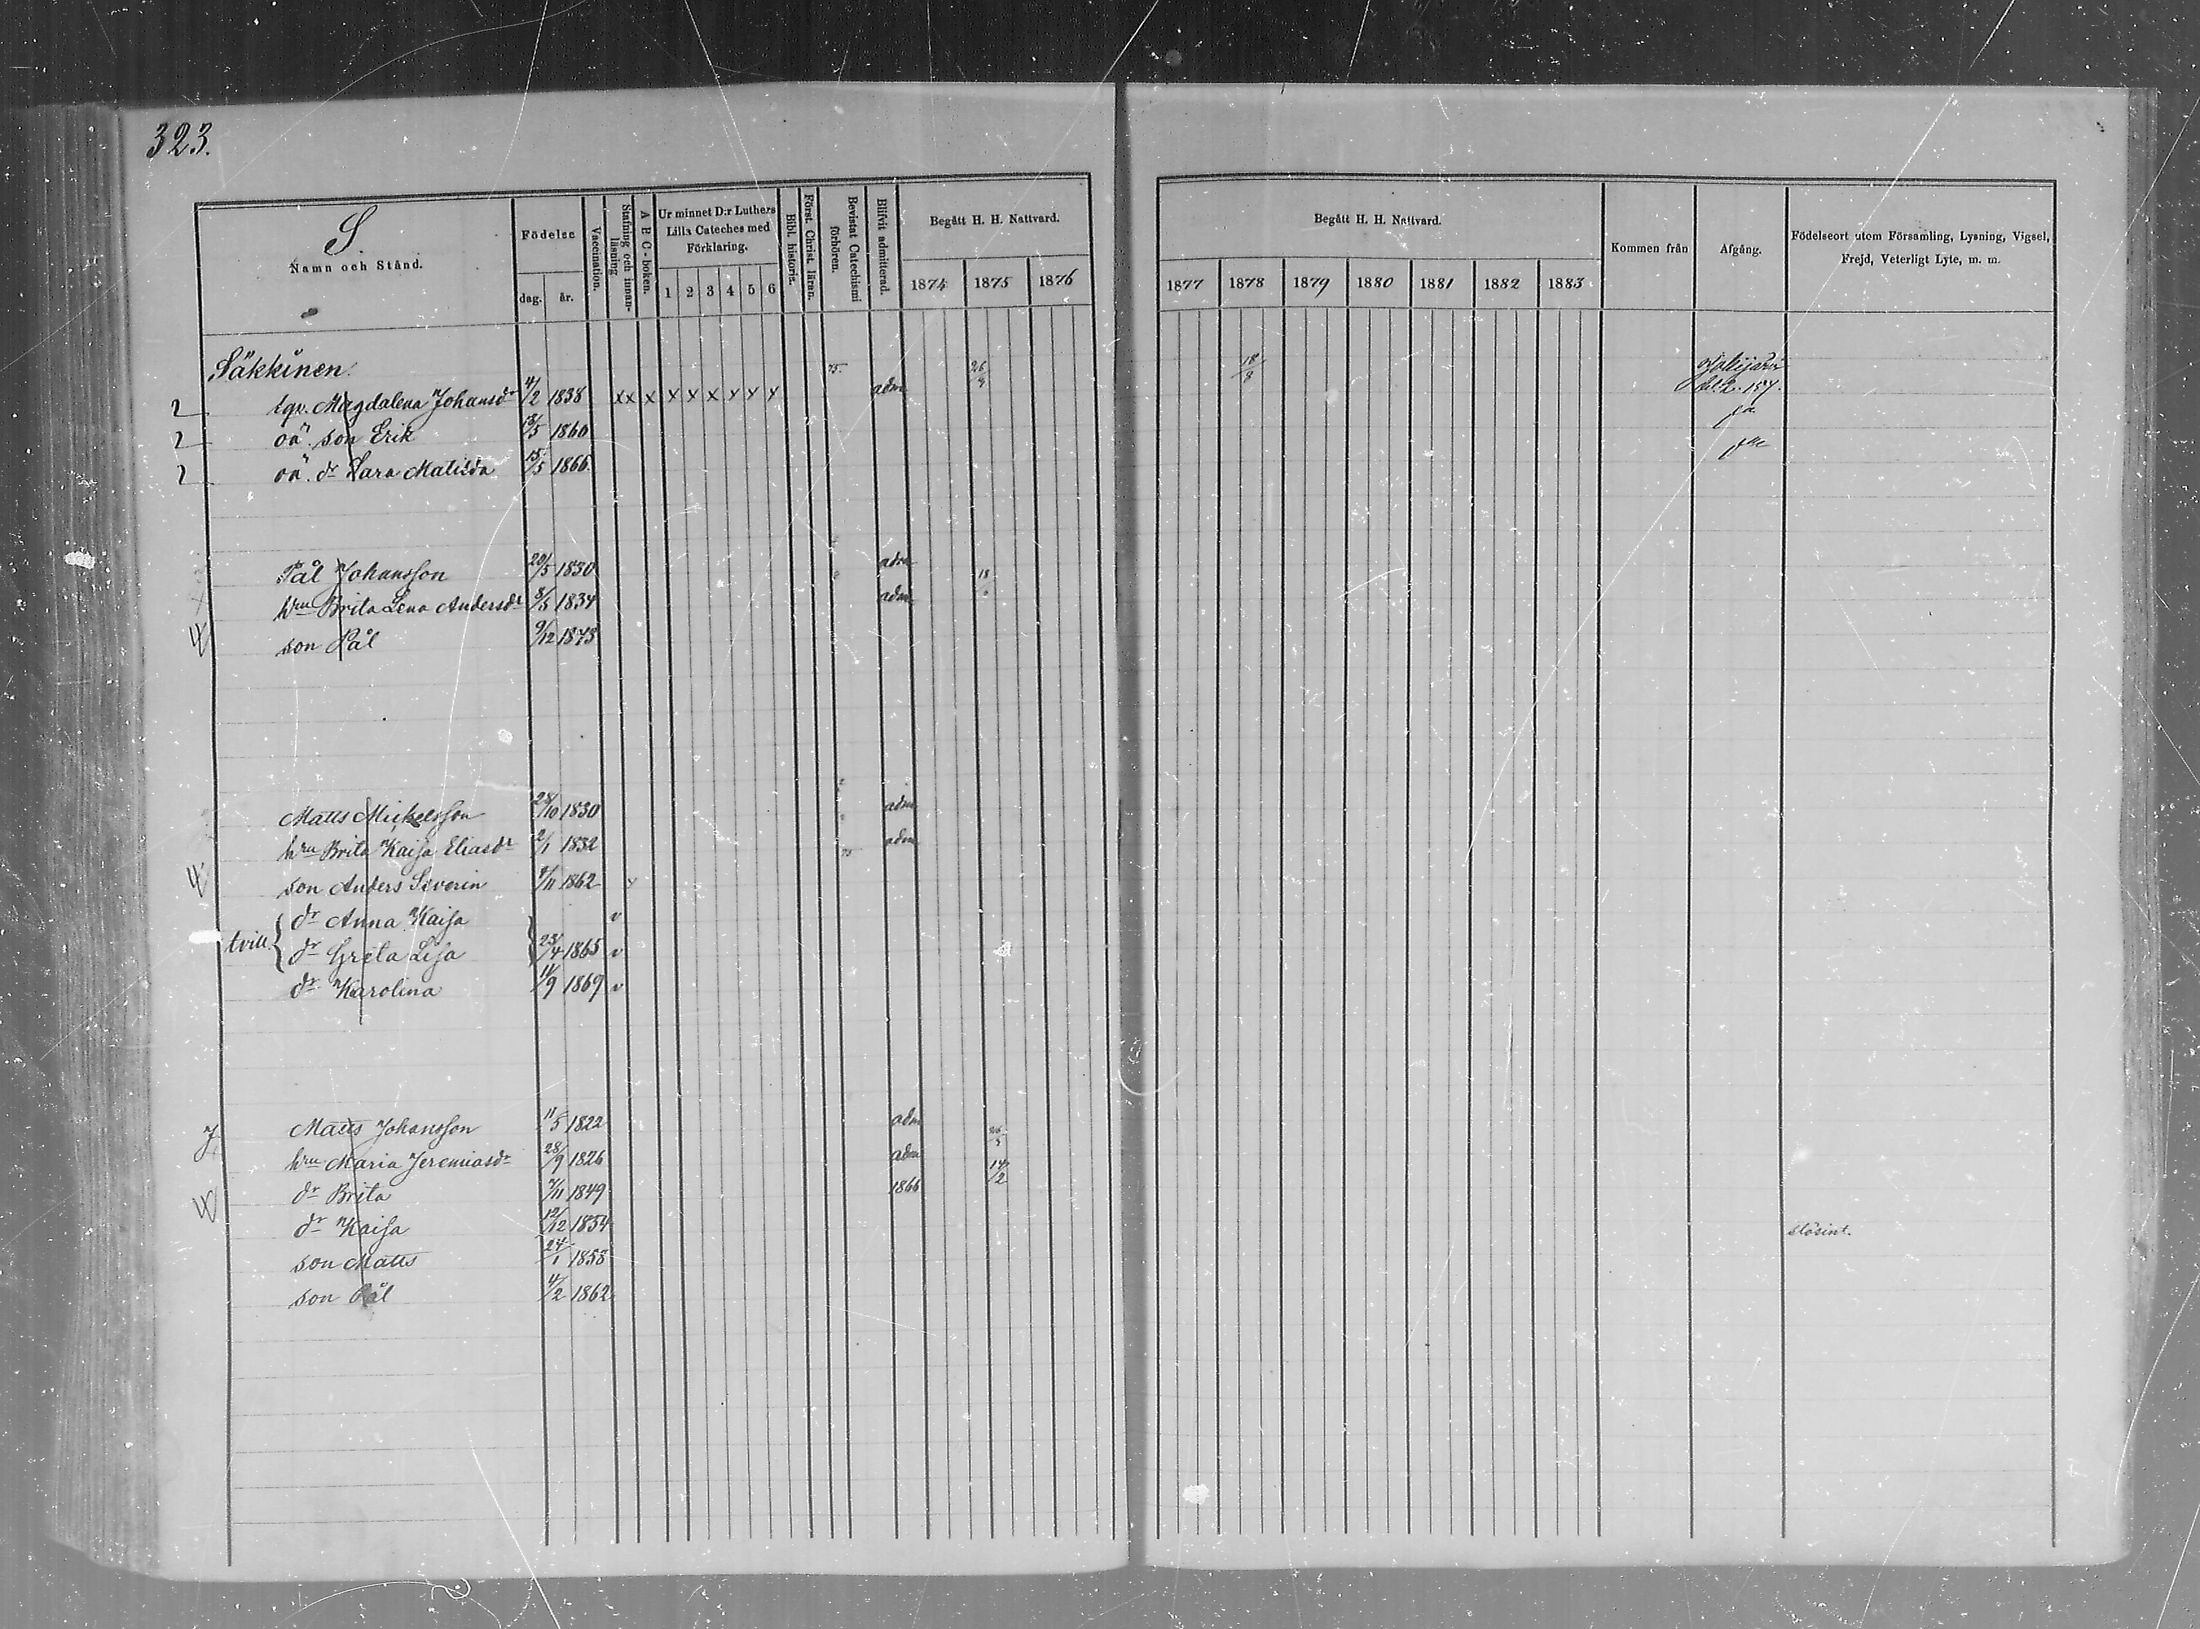 323.
S.
Namn och Stånd.
Födelse
dag.
år.
Vaccination.
Stafning och innanläsning
A B C-boken.
Ur minnet D:r Luthers
Lilla Cateches med
Förklaring.
1 2 3 4 5 6
Bibl. historie.
Först. Christ. läran.
Bevistat Catechismi förhören.
Blifvit admitterad.
Begått H. H. Nattvard.
1874 1875 1876
Begått H. H. Nattvard.
1877 1878 1879 1880 1881 1882 1883
Kommen från
Afgång.
Födelseort utom Församling, Lysning, Vigsel,
Frejd, Veterligt Lyte, m. m.
Säkkinen. 75. 26/9 18/8
2 Magdalena Johansdr 4/2 1838 x x x x x x x x x adm 157.
2 oä. son Erik 13/5 1860
2 oä. dr Sara Matilda 15/5 1866
Pål Johansson 20/5 1830 adm
hru Brita Lena Andersdr 8/5 1834 adm 18
son Pål 9/12 1873
Matts Mickelsson 28/10 1830 adm
hru Brita Kaisa Eliasdr 2/1 1832 adm
75
son Anders Severin 9/11 1862
dr Anna Kaisa v
tvill. dr Greta Lisa 23/4 1865 v
dr Karolina 11/9 1869 v
Matts Johansson 11/5 1822 adm
hru Maria Jeremiasdr 28/9 1826 adm 14/2
dr Brita 7/11 1849 1866
dr Kaisa 12/12 1854 slösint.
son Matts 24/1 1858
son Pål 4/2 1862